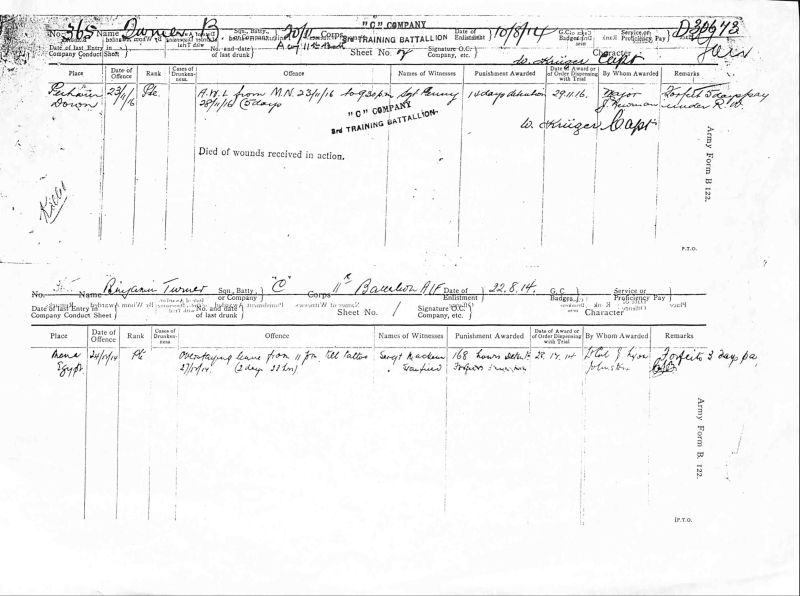 No. 365 Name Turner B Sqn., Batty., or Company 20/11 Corps "C" COMPANY 3rd TRAINING BATTALION Date of Enlistment 10/8/14 G.C. Badges Service or Proficiency Pay
Date of last Entry in Company Conduct Sheet No. and date of last drunk Sheet No. Signature O.C. Company, etc. W. Krüger Capt Character Fair
Place Date of Offence Rank Cases of Drunken-ness Offence Names of Witnesses Punishment Awarded Date of Award or of Order Dispensing with Trial By Whom Awarded Remarks
Perham Down 23/11/16 Pte. A.W.L. from M.N. 23/11/16 to 9.30 pm 28/11/16 (5 days) Sgt Penny days detention 29.11.16. Major J. Newman Forfeit 5 days pay under R.W.
"C" COMPANY
3rd TRAINING BATTALION.
W. Krüger Capt
Died of wounds received in action.
Killed
Army Form B 122.
P.T.O.
No. Name Benjamin Turner Sqn., Batty., or Company "C" Corps 11th Battalion AIF Date of Enlistment 22.8.14. G.C. Badges Service or Proficiency Pay
Date of last Entry in Company Conduct Sheet No. and date of last drunk Sheet No. 1 Signature O.C. Company, etc. Character
Place Date of Offence Rank Cases of Drunken-ness Offence Names of Witnesses Punishment Awarded Date of Award or of Order Dispensing with Trial By Whom Awarded Remarks
Mena Egypt 24/12/14 Pte Overstaying leave from till Tattoo 27/12/14. (2 days 23 hrs) Sergt 168 hours Lt Col J Lyon Johnston Forfeits 3 days pa
Army Form B. 122.
P.T.O.